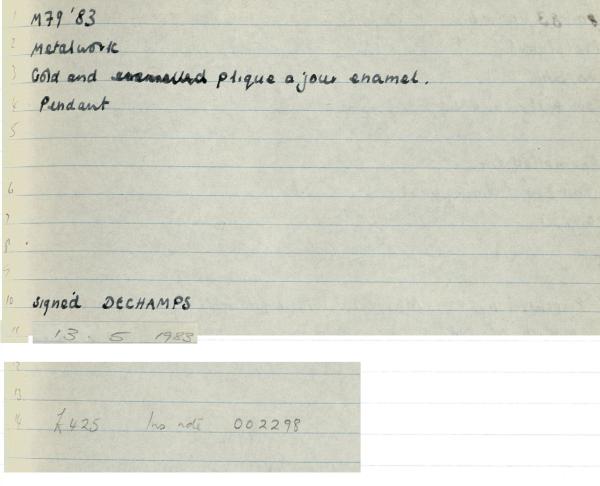 1 M79 '83
2 Metalwork
3 Gold and enamelled plique a jour enamel.
4 Pendant
5
6
7
8
9
10 Signed DECHAMPS
11 13. 5 1983
12
13
14 £425 Ins note 002298